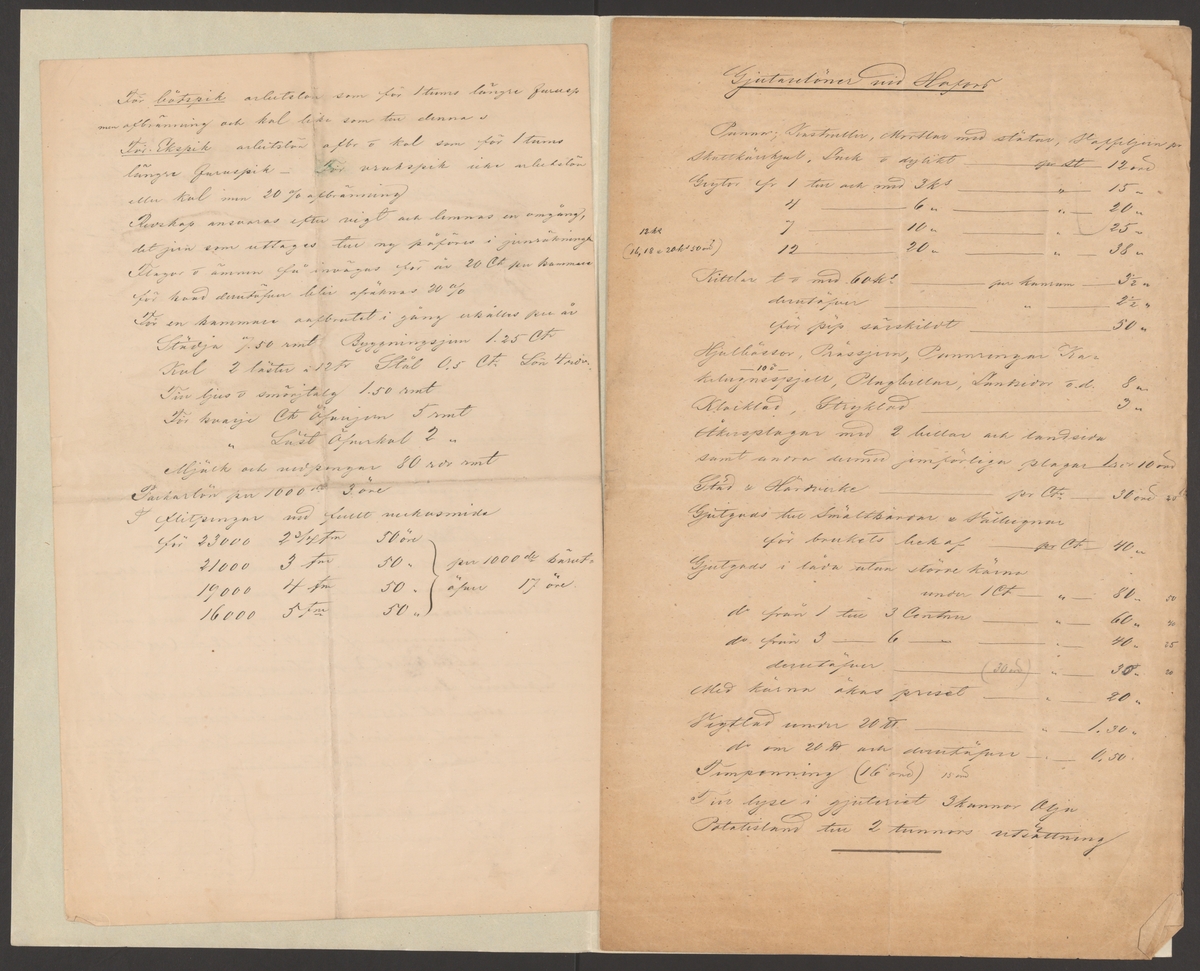 För båtspik arbetslön som för 1 tums längre furusp
men afbränning och kol lika som till denna
För Ekspik arbetslön afbr o kol som för 1 tums
längre furuspik — För vrakspik icke arbetslön
eller kol men 20 % afbränning
Redskap ansvaras efter vigt och lemnas en omgång,
det jern som uttages till ny påföres i jernräkningen
Slagor o ämnen få invägas för år 20 Ct per hammare
för hvad derutöfver blir afräknas 20 %
För en hammare oafbrutet i gång erhålles per år
Städja 7.50 rmt Byggningsjern 1.25 Ct
Kol 2 läster a 12 tr Stål 0.5 Ct. Lön 4 rdr
Till ljus o smörjtalg 1.50 rmt
För hvarje Ct Öfverjern 5 rmt
„ Läst Öfverkol 2 „
Mjölk och vedpengar 80 rdr rmt
Packarlön per 1000 st 3 öre
I flitpengar vid fullt veckosmide
för 23000 2 3/4 tm 50 öre
21000 3 tm 50 „ per 1000 de häröf-
19000 4 tm 50 „ öfver 17 öre
16000 5 tm 50 „
Gjutarelöner vid Hofors
Panna, Kastruller, Mortlar med stötar, Kappjern
Skottkärrhjul, Lock o dylikt pr st 12 öre
Grytor fr 1 till och med 3 ks „ 15 „
4 — 6 „ „ 20 „
7 — 10 „ „ 25 „
12 ks
(16, 18 o 20 ks 30 öre) 12 20 „ „ 38 „
Kittlar t o med 60 ks per kanrum 3 1/2 „
derutöfver „ 2 1/2 „
för pip särskildt 50 „
Hjulbössor, Pressjern, Pannringar Ka-
10 ö
kelugnsspjell, Plogbillar, Landsidor o.d. 8 „
Klocklod, Stryklod 3 „
Åkersplogar med 2 billar och landsida
samt andra dermed jemförliga plogar 1 rdr 10 öre
Städ o Härdverke pr Ct. 30 öre
Gjutgods till Smälthärdar o Välleugnar
för brukets behof pr Ct 40 „
Gjutgods i låda utan större kärna
under 1 Ct „ 80 „ 50
do från 1 till 3 Centner „ 60 „
do från 3 — 6 „ „ 40 „ 25
derutöfver (30 öre) „ 30 „ 20
Med kärna ökas priset „ 20 „
Vigtlod under 20 ℔ „ 1.30 „
do om 20 ℔ och derutöfver „ 0.50
Timpenning (16 öre) 18 öre
Till lyse i gjuteriet 3 kannor Olja
Potatisland till 2 tunnors utsättning